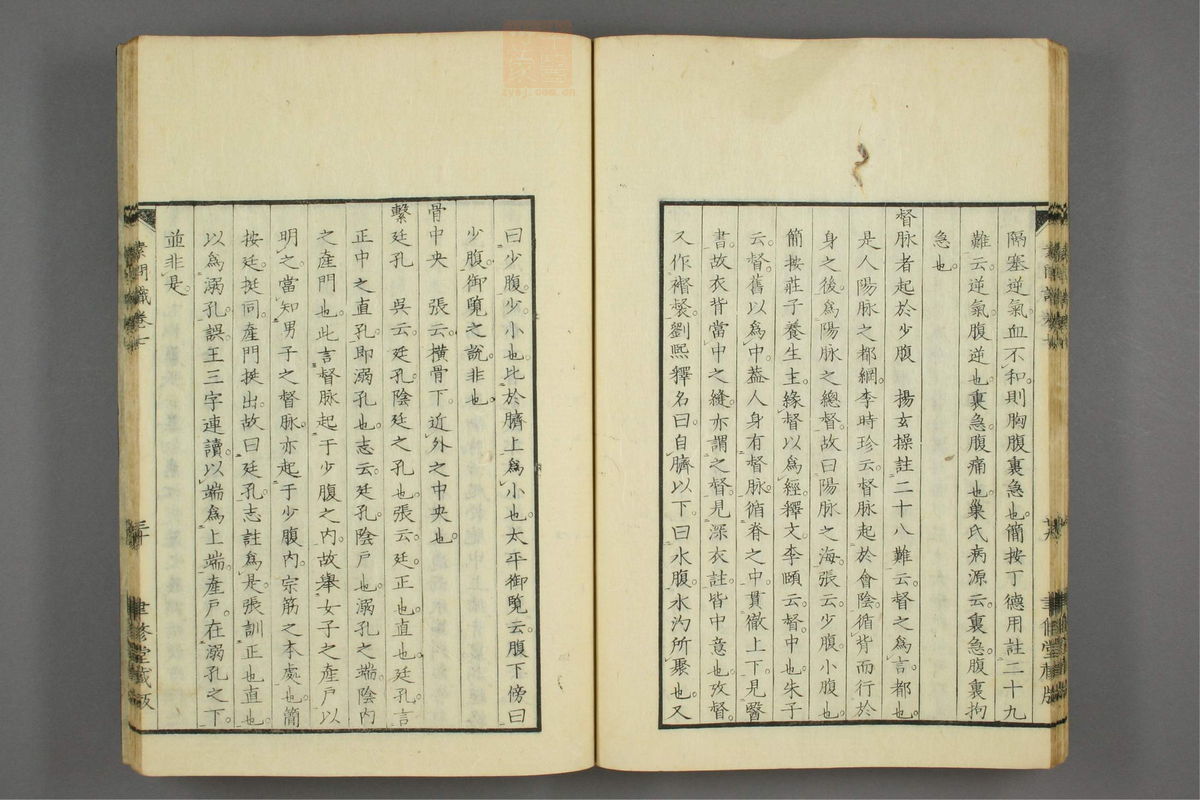 隔塞逆氣血不和則胸腹裏急也簡按丁德用註二十九
難云逆氣腹逆也裏急腹痛也巢氏病源云裏急腹裏拘
急也
督脉者起於少腹 揚玄操註二十八難云督之爲言都也
是人陽脉之都綱李時珍云督脉起於會陰循背而行於
身之後爲陽脉之總督故曰陽脉之海張云少腹小腹也
簡按莊子養生主緣督以爲經釋文李頤云督中也朱子
云督舊以爲中蓋人身有督脉循脊之中貫徹上下見醫
書故衣背當中之縫亦謂之督見深衣註皆中意也攷督
又作襡裻劉熙釋名曰自臍以下曰水腹水汋所聚也又
曰少腹少小也比於臍上爲小也太平御覽云腹下傍曰
少腹御覽之說非也
骨中央 張云橫骨下近外之中央也
繫廷孔 吳云廷孔陰廷之孔也張云廷正也直也廷孔言
正中之直孔即溺孔也志云廷孔陰戶也溺孔之端陰內
之產門也此言督脉起于少腹之內故舉女子之產戶以
明之當知男子之督脉亦起于少腹內宗筋之本處也簡
按廷挺同產門挺出故曰廷孔志註爲是張訓正也直也
以爲溺孔誤王三字連讀以端爲上端產戶在溺孔之下
並非是
素問識卷七
三十
聿修堂藏版